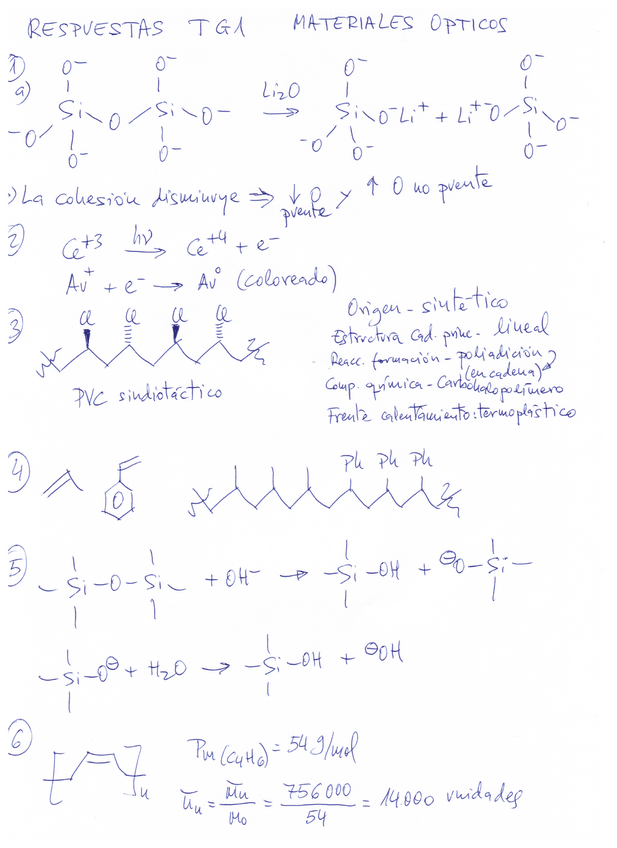 RESPUESTAS TG1 MATERIALES OPTICOS
1)
a)
O⁻ O⁻ O⁻ O⁻
Si O Si O⁻ Li₂O → Si O⁻Li⁺ + Li⁺⁻O Si
⁻O O⁻ O⁻ ⁻O O⁻ O⁻ O⁻
La cohesión disminuye ⇒ ↓ O puente y ↑ O no puente
2)
Ce⁺³ hν → Ce⁺⁴ + e⁻
Au⁺ + e⁻ → Au⁰ (coloreado)
3)
Cl Cl Cl Cl
PVC sindiotáctico
Origen - sintético
Estructura Cad. princ. - lineal
Reacc. formación - poliadición
(en cadena)
Comp. química - Carbohalopolímero
Frente calentamiento: termoplástico
4)
Ph Ph Ph
5)
-Si-O-Si- + OH⁻ → -Si-OH + ⊖O-Si-
-Si-O⊖ + H₂O → -Si-OH + ⊖OH
6)
n
Pm (C₄H₆) = 54 g/mol
n̄n = M̄n/M₀ = 756000/54 = 14.000 unidades